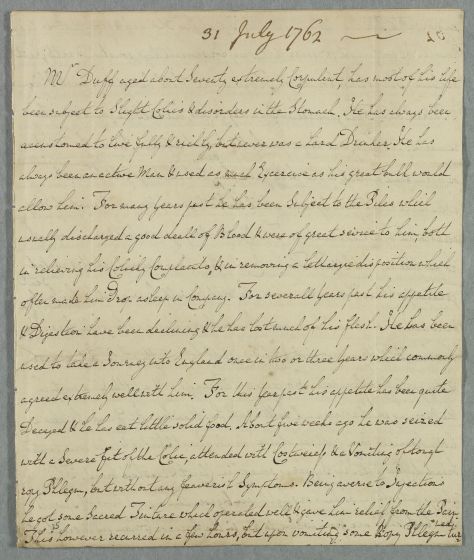 31 July 1762
Mr Duff aged about Seventy extremely Corpulent, has most of his life
been subject to Slight Colics & disorders in the Stomach, He has always been
accustomed to live fully & richly, but never was a hard Drinker, He has
always been an active Man & used as much Excercise as his great bulk would
allow him. For many Years past he has been Subject to the Piles which
usually discharged a good deall of Blood & were of great service to him, both
in relieving his Colicky Complaints, & in removing a Lethargic disposition which
often made him Drop asleep in Company. For severall Years past his appetite
& Digestion have been declining & he has lost much of his flesh. He has been
used to take a Journey into England once in two or three Years which commonly
agreed extremely well with him. For this Year past his appetite has been quite
Decayed & he has eat little solid food, About five weeks ago he was seized
with a Severe Fit of the Colic, attended with Costiveness & a Vomiting of tough
ropy Phlegm, but without any feaverish Symptoms. Being averse to Injections
he got some Sacred Tincture which operated well & gave him relief from the Pain
This however recurred in a few hours, but upon vomiting some Ropy Phlegm